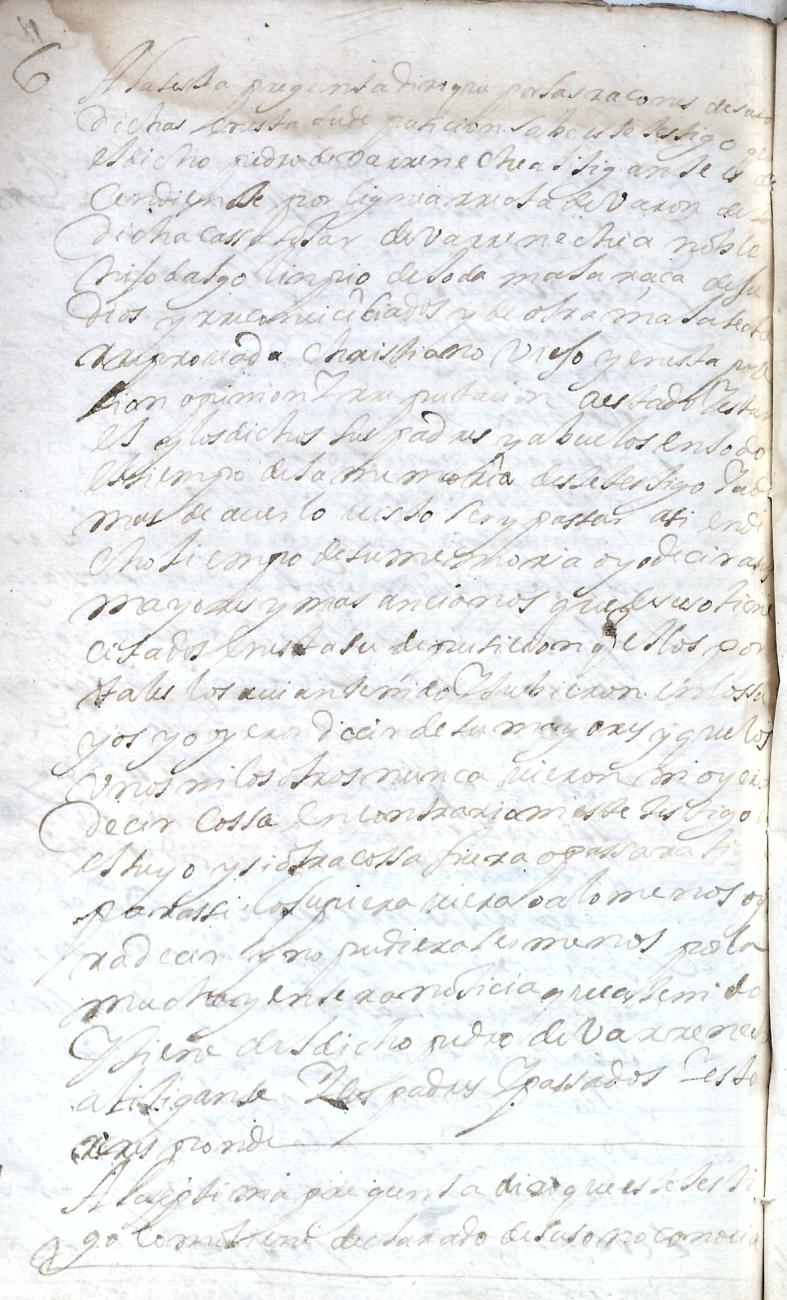 6
A la sesta pregunta dixo que por las raçones de suso
dichas en esta su de pusicion sabe este testigo que
el dicho pedro de Varrenechea litigante es de
cendiente por lignea rrecta de Varon de la
dicha cassa solar de Varrenechea noble
hijo dalgo linpio de toda mala raça de ju
dios y rreconciliados y de otra mala secta
rreprovada Christiano viejo y en esta posse
sion opinion Y rre putacion a estado Y estan
el y los dichos sus padres y abuelos en todo
el tiempo de la memoria deste testigo Y ade
mas de averlo visto ser y passar asi en di
cho tiempo de su memoria oyo decir a sus
mayores y mas ancianos que de suso tiene
citados en esta su depusicion q ellos por
tales los avian tenido Y tubieron en los su
yos y oyeron decir de sus mayores y que los
unos ni los otros nunca vieron ni oyeron
decir cossa en contrario ni este testigo
estuyo y si otra cossa fuera o passara
para assi lo supiera viera o a lo menos oye
ra decir y no pudiera ser menos por la
mucha y entera noticia que a tenido
Y tiene del dicho pedro de Varrenech
a litigante Y sus padres Y passados Y esto
rresponde
A la septima pregunta dixo que este testi
go como tiene declarado de suso no conocio